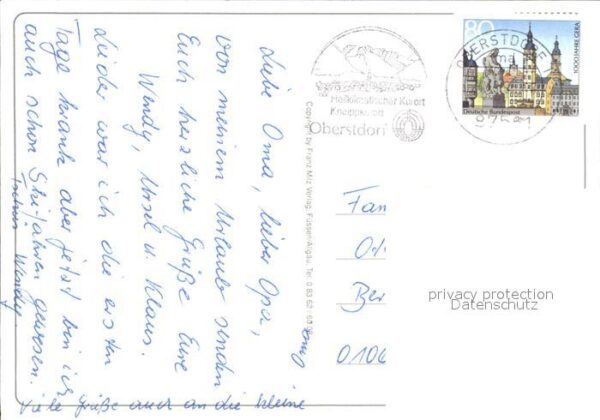 Liebe Oma, lieber Opa,
von meinem Urlaub senden
Euch herzliche Grüße Eure
Wendy, Ursel u. Klaus.
Leider war ich die ersten
Tage krank aber jetzt bin ich
auch schon Ski-fahren gewesen.
Wendy
viele Grüße auch an die kleine
Copyright by Franz Milz Verlag, Füssen-Allgäu, Tel. 0 83 62
Heilklimatischer Kurort
Kneippkurort
Oberstdorf
OBERSTDORF
80
1000 JAHRE GERA
Deutsche Bundespost
Fam
Ber
privacy protection
Datenschutz